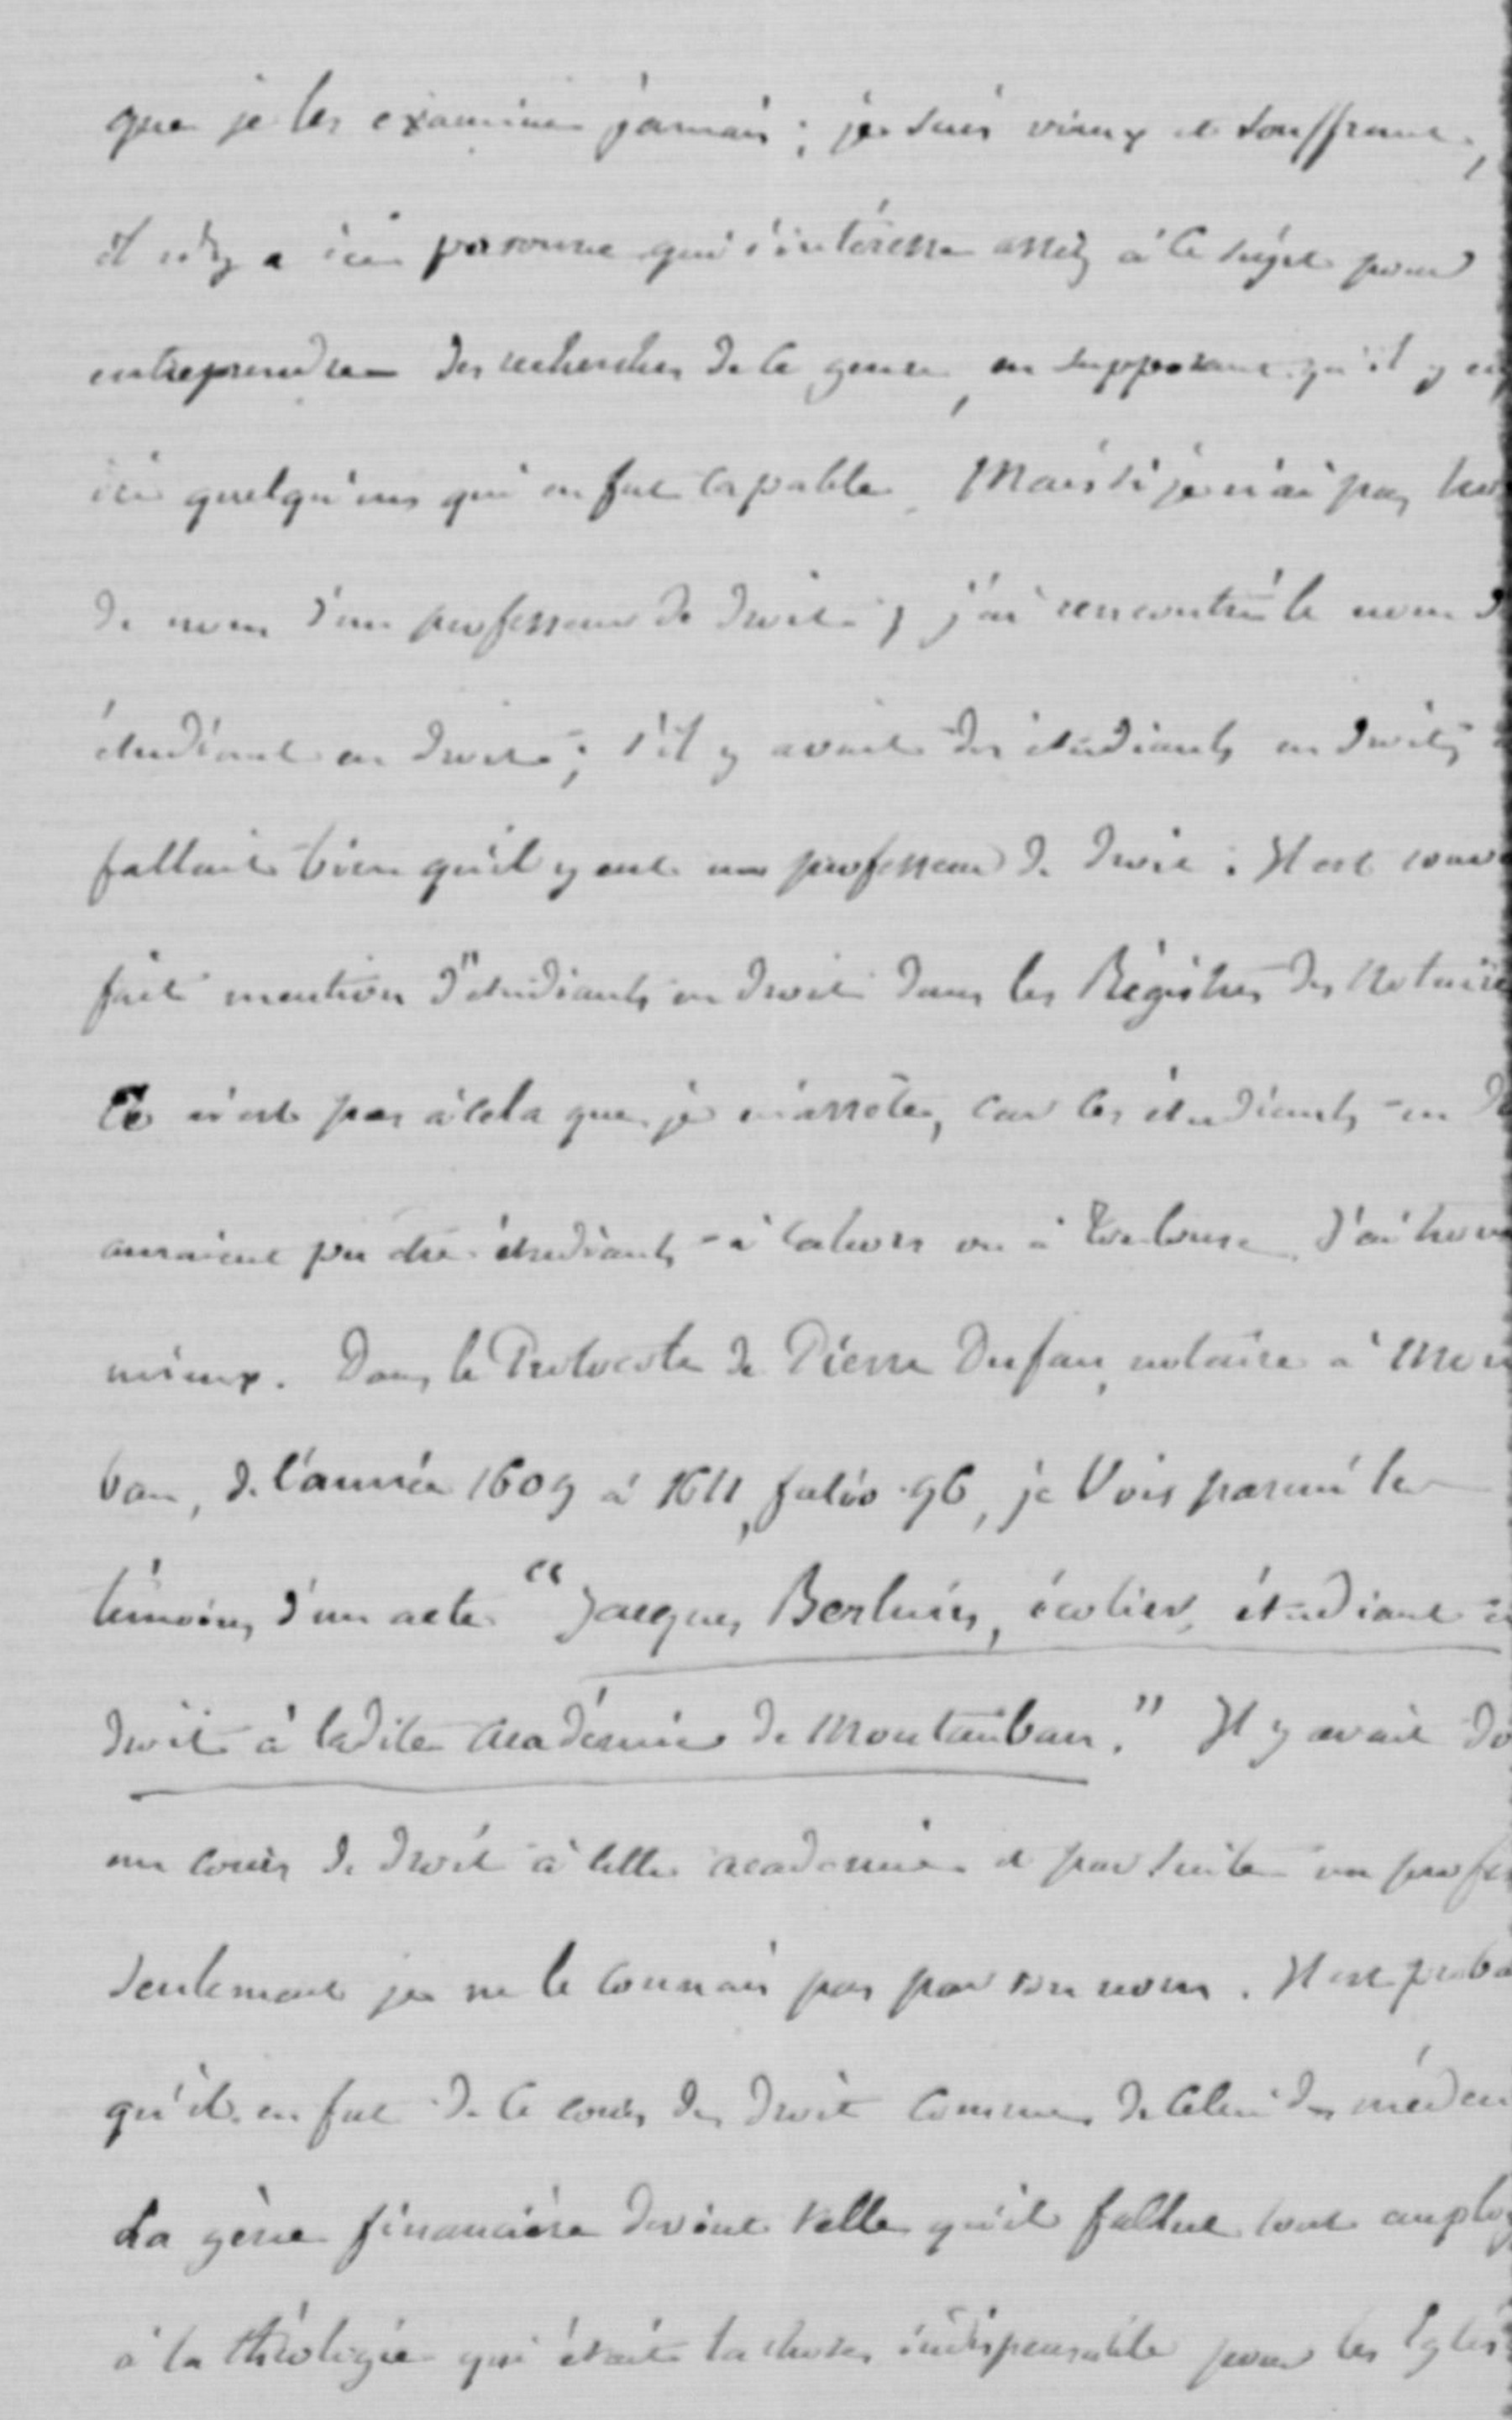 que je les examine jamais ; je suis vieux et souffrant,
il n'y a ici personne qui s'intéresse assez à ce sujet pour
entreprendre des recherches de ce genre, en supposant qu'il y en
ici quelqu'un qui en fut capable. Mais si je n'ai pas
de nom d'un professeur de droit, j'ai rencontré le nom d
étudiant en droit ; s'il y avait des étudiants en droit,
fallait bien qu'il y eut un professeur de droit ; Il est souv
fait mention d'étudiants en droit dans les Régistres des Notaire
Ce n'est pas à cela que je m'arrête, car les étudiants en d
auraient pu être étudiants à Cahors ou à Toulouse. J'ai trouv
mieux. Dans le Protocole de Pierre Dufau, notaire à Mon
ban, de l'année 1609 à 1611, folio 96, je Vois parmi les
témoins d'un acte " Jacques , écolier, étudiant en
droit à ladite Académie de Montauban." Il y avait do
un cours de droit à cette académie et par suite un profes
Seulement je ne le connais pas par son nom. Il est proba
qu'il en fut de ce cours de droit comme de celui de médeci
La gène financière devint telle qu'il fallut tout employ
à la théologie qui était la chose indispensable pour les Eglis